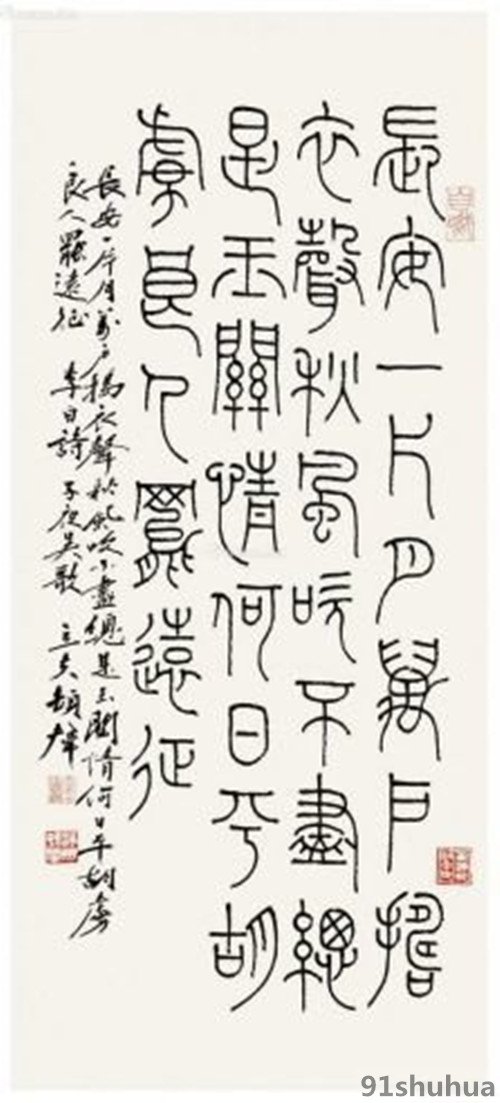 長安一片月萬戶擣
衣聲秋風吹不盡總
是玉關情何日平胡
虜良人罷遠征
長安一片月萬戶搗衣聲秋風吹不盡總是玉關情何日平胡虜
良人罷遠征 李白詩 子夜吳歌
91shuhua